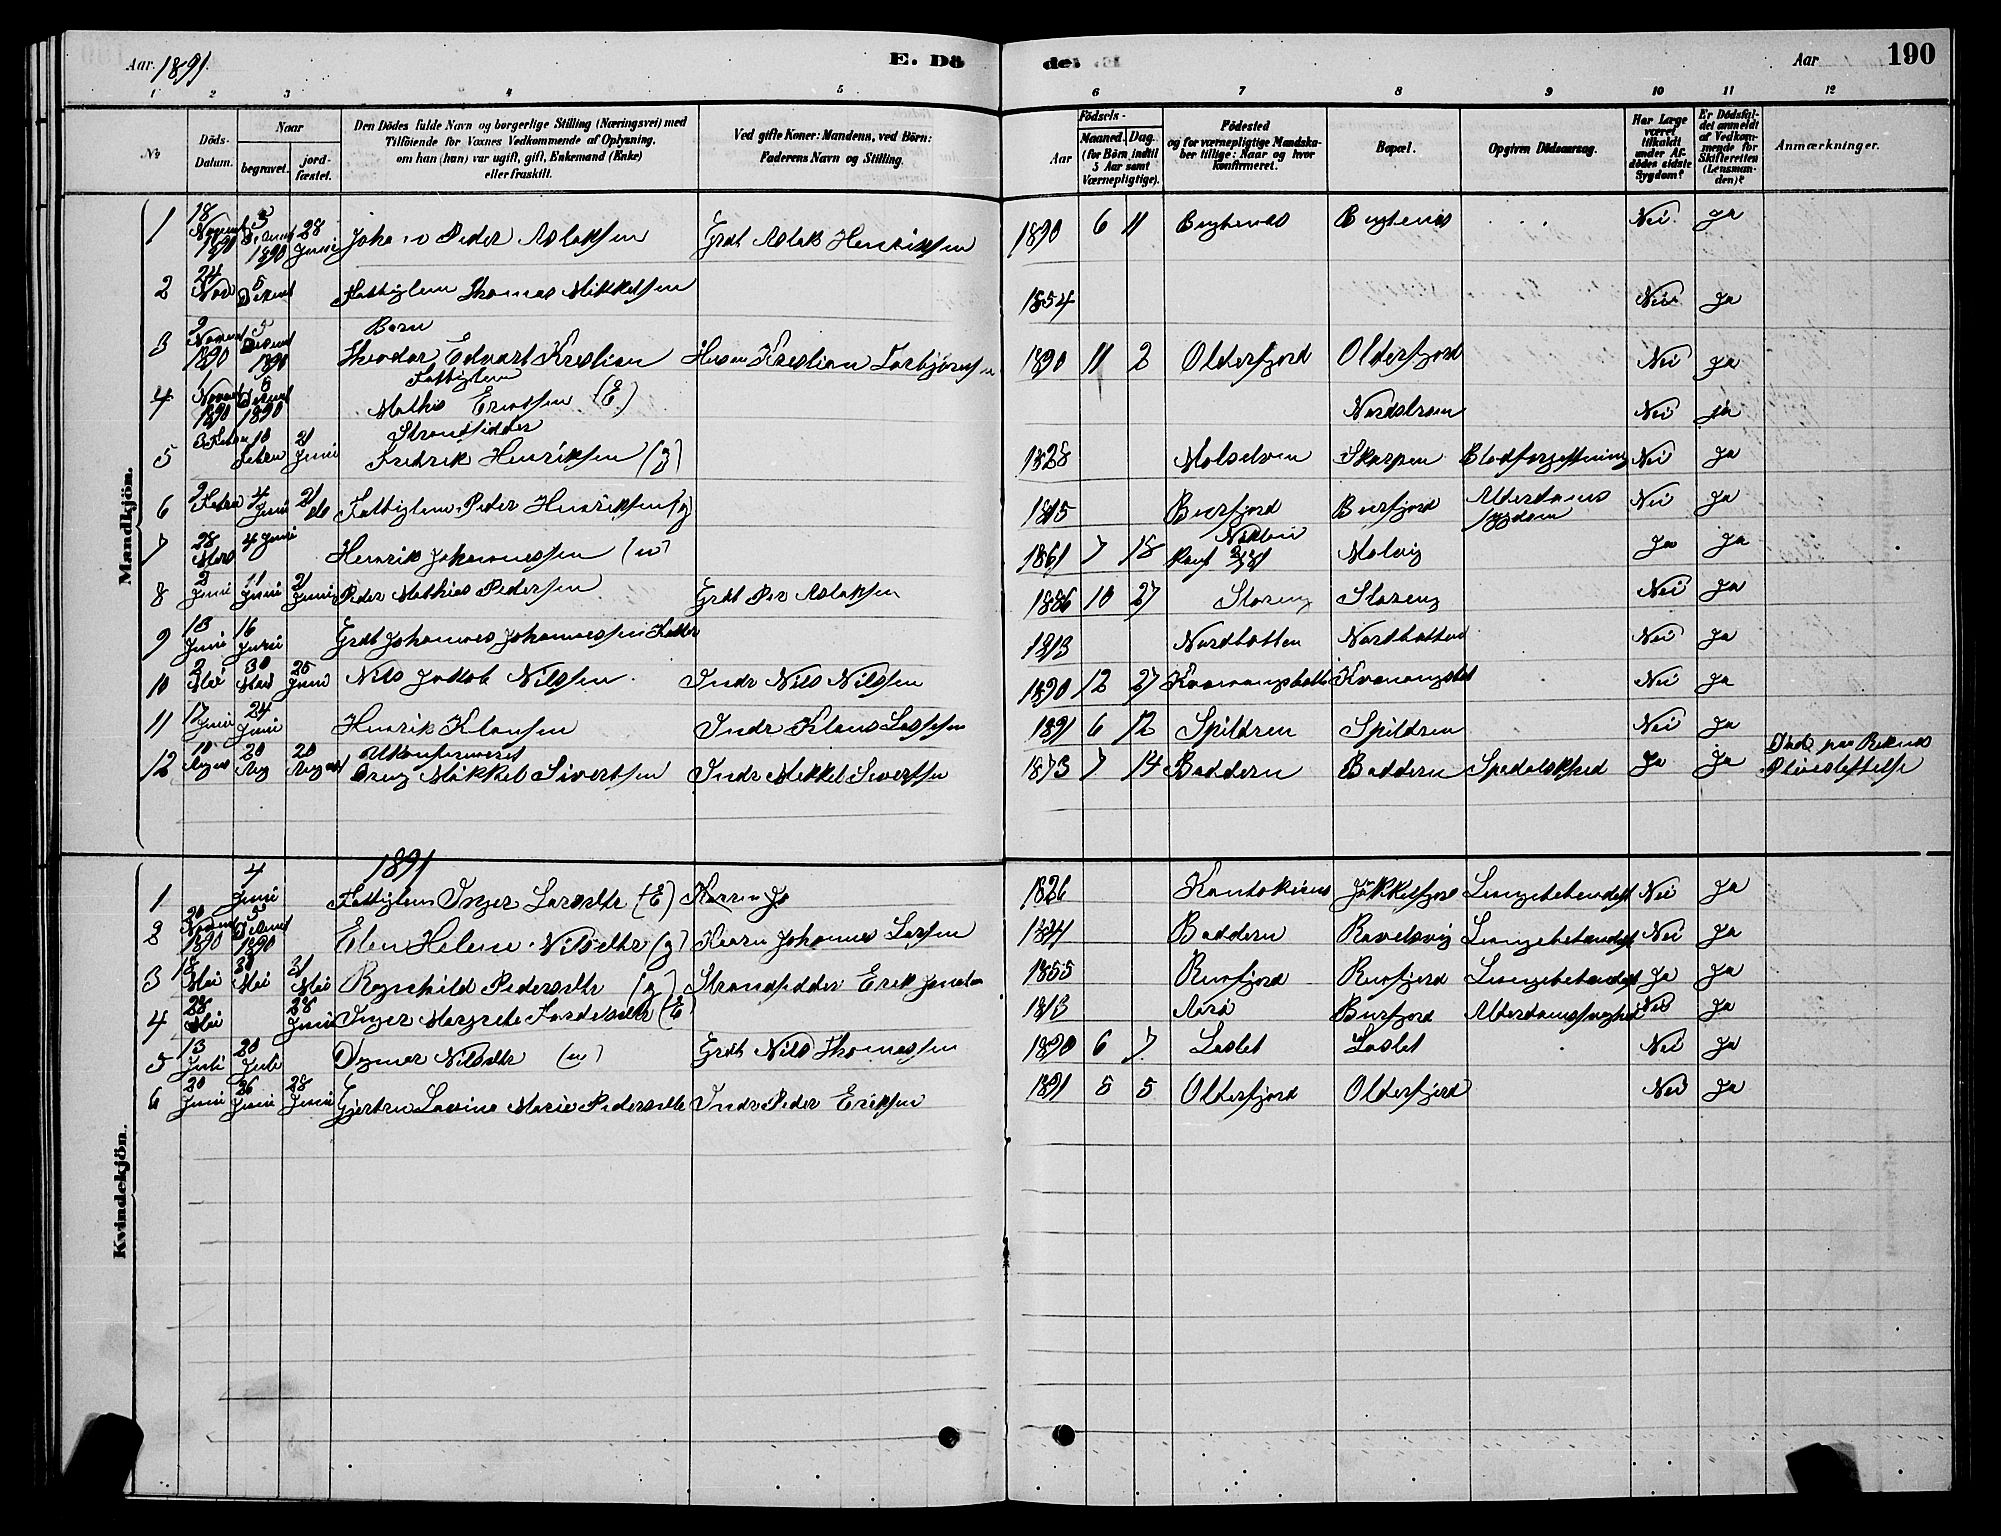 Aar. 1891.
E. Dö
de:
Aar
190
1 2 3 4 5 6 7 8 9 10 11 12
No
Döds-Datum.
Naar
begravet.
jord-fæstet.
Den Dödes fulde Navn og borgerlige Stilling (Næringsvei) med
Tilföiende for Voxnes Vedkommende af Oplysning,
om han (hun) var ugift, gift, Enkemand (Enke)
eller fraskilt.
Ved gifte Koner: Mandens, ved Börn:
Faderens Navn og Stilling.
Födsels-
Aar
Maaned.
Dag.
(for Börn indtil
5 Aar samt
Værnepligtige).
Födested
og for værnepligtige Mandska-
ber tillige: Naar og hvor
konfirmeret.
Bopæl.
Opgiven Dödsaarsag.
Har Læge
været
tilkaldt
under Af-
dödes sidste
Sygdom?
Er Dödsfal-
det anmeldt
af Vedkom-
mende for
Skifteretten
(Lensman-
den)?
Anmærkninger.
Mandkjön.
1 18 Novemb 1890 5 Desemb 1890 28 Juni Johan Peder Aslaksen Grdt Aslak Henriksen 1890 6 11 Nei Ja
2 24 Nov 5 Desemb Fattiglem Thomas Mikkelsen 1854 Nei Ja
Barn
3 2 Novemb 1890 5 Desemb 1890 Theodor Edvart Kristian Husm Kristian Torbjørnsen 1890 11 2 Olderfjord Olderfjord Nei Ja
Fattiglem
4 1 Novemb 1890 6 Desemb 1890 Mathis Ericksen (E) Nordstrøm Nei ja
Strandsidder
5 3 Febru 10 Febru 21 Juni Fredrik Henriksen (g) 1828 Malselven Skorpen Blodforgiftning Nei Ja
6 2 Febru 4 Juni 21 do Fattiglem Peder Henriksen (g) 1815 Burfjord Burfjord Alderdoms sygdom Nei Ja
7 28 Mars 4 Juni Henrik Johannessen (u) 1861 7 18 Konf Molvig Ja Ja
8 2 Juni 11 Juni 21 Juni Peder Mathias Pedersen Grdt Per Aslaksen 1886 10 27 Storeng Storeng Nei Ja
9 13 Juni 16 Juni Grdt Johannes Johannessen 1813 Nordbotten Nordbotten Nei Ja
10 2 Mai 30 Mai 25 Juni Nils Jakob Nilssen Indr Nils Nilssen 1890 12 27 Kvænangsbott Kvænangsbot Nei Ja
11 17 Juni 24 Juni Henrik Klausen Indr Klaus Lassesen 1891 6 12 Spildren Spildren Nei Ja
12 10 August 20 Aug 20 August Ukonfirmeret Dreng Mikkel Sivertsen Indr Mikkel Sivertsen 1873 7 14 Baddern Baddern Spedalskhed Ja Ja
Kvindekjön.
1891
1 4 Juni Fattiglem Inger Larsdtr (E) 1826 Kautokeino Jøkkelfjord Lungebetendelse Nei Ja
2 20 Novemb 1890 5 Desemb 1890 Elen Helene Nilsdtr (g) Johannes Larsen Baddern Ravelsvig Lungebetendelse Nei Ja
3 18 Mai 30 Mai 31 Mai Ragnhild Pedersdtr (g) Strandsidder Erik 1855 Burfjord Burfjord Lungebetendelse Ja Ja
4 28 Mai 28 Juni Inger Margrete (E) 1813 Burfjord Alderdomssvaghed Nei Ja
5 13 Juli 20 Juli Dagmar Nilsdtr (u) Grdt Nils Thomassen 1890 6 7 Laslet Laslet Nei Ja
6 20 Juni 26 Juni 28 Juni Gjertru Lovina Marie Pedersdtr Indr Peder Eriksen 1891 5 5 Olderfjord Olderfjord Nei Ja